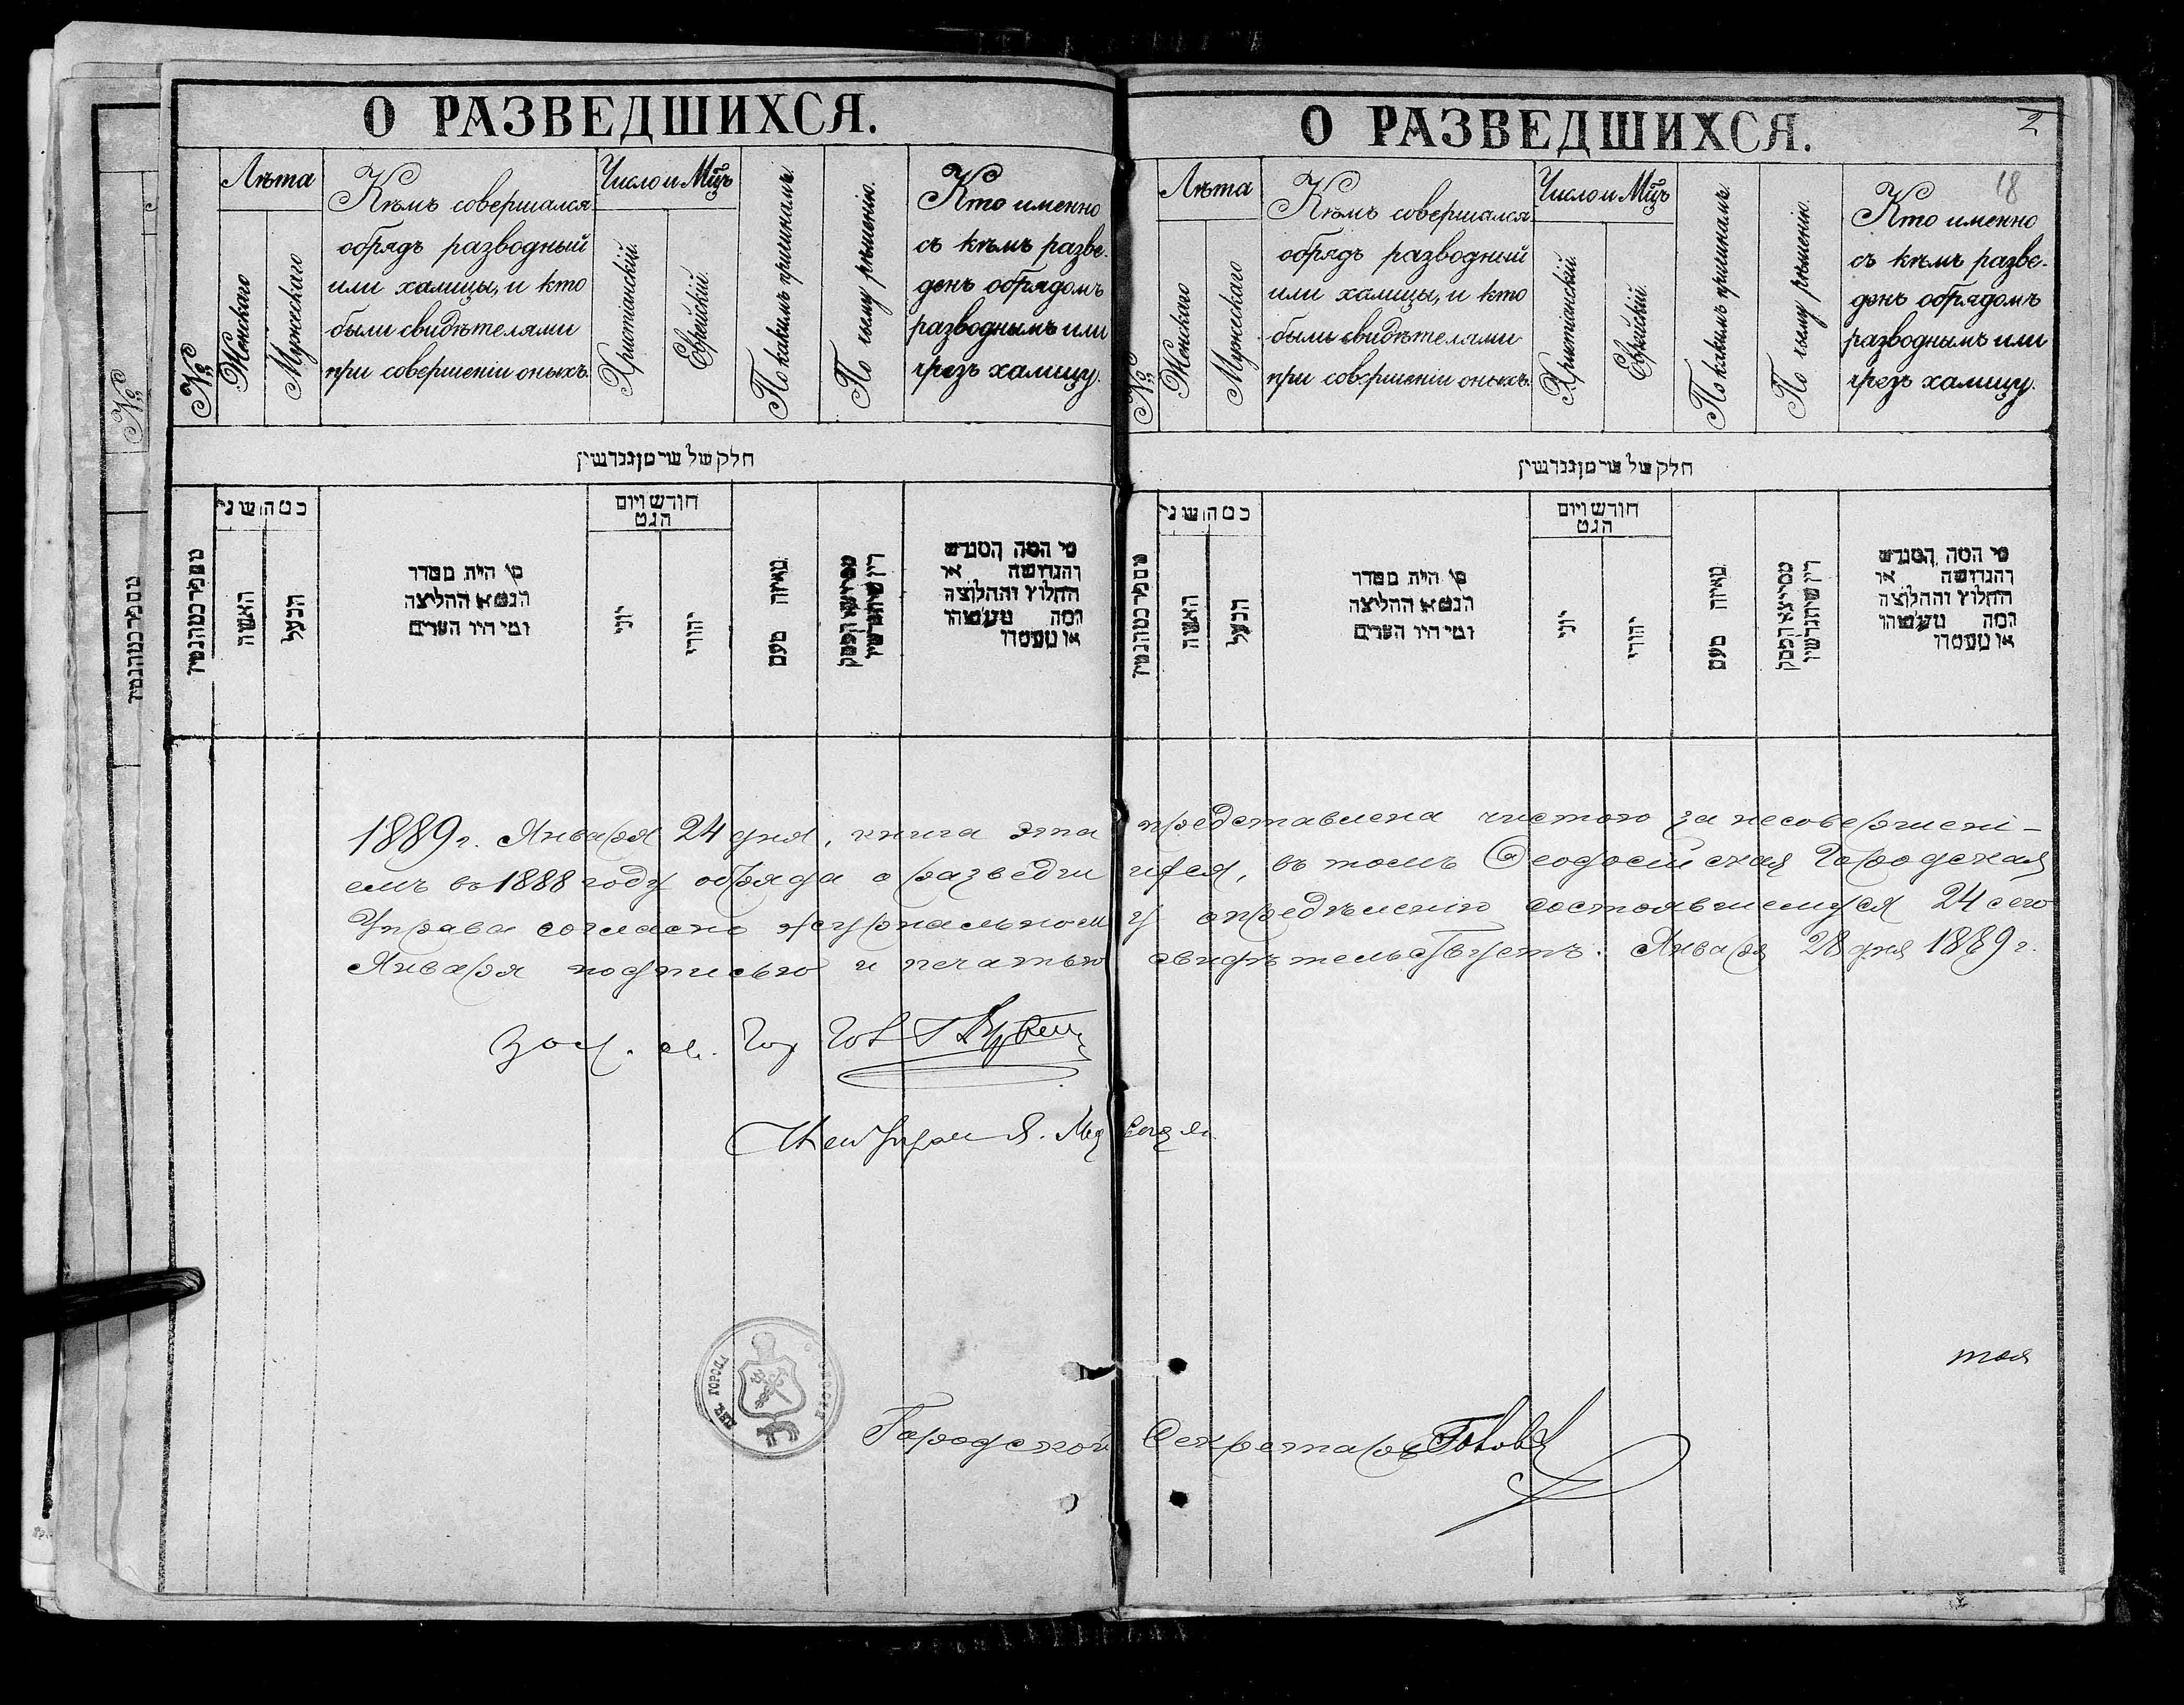 О РАЗВЕДШИХСЯ.
№
Лѣта
Женскаго
Мужескаго
Кѣмъ совершался
обрядъ разводный
или халицы, и кто
были свидѣтелями
при совершеніи оныхъ.
Число и Мцъ
Христіанскій.
Еврейскій.
По какимъ причинамъ.
По чьему рѣшенію.
Кто именно
съ кѣмъ разве-
денъ обрядомъ
разводнымъ или
чрезъ халицу.
חלק של שרטן גגרושין
האשה
הבעל
מי היה מסדר
הגט או החליצה
ומי היו העדים
חודש ויום
הגט
יוני
יהודי
מאיזה טעם
מי המה המגרש
והגרושה או
החלוץ והחלוצה
ומה מעשהו
או מעמדו
О РАЗВЕДШИХСЯ.
2
18
№
Лѣта
Женскаго
Мужескаго
Кѣмъ совершался
обрядъ разводный
или халицы, и кто
были свидѣтелями
при совершеніи оныхъ.
Число и Мцъ
Христіанскій.
Еврейскій.
По какимъ причинамъ.
По чьему рѣшенію.
Кто именно
съ кѣмъ разве-
денъ обрядомъ
разводнымъ или
чрезъ халицу.
האשה
הבעל
מי היה מסדר
הגט או החליצה
ומי היו העדים
חודש ויום
הגט
יוני
יהודי
מאיזה טעם
מי המה המגרש
והגרושה או
החלוץ והחלוצה
ומה מעשהו
או מעמדו
1889 г. Января 24 дня, книга эта представлена чистою за несовершені-
емъ во 1888 году обряда о разведшихся, въ томъ Ѳеодосійская Городская
Управа согласно журнальному опредѣленію состоявшемуся 24 сего
Января подписью и печатью свидѣтельствуетъ. Января 28 дня 1889 г.
Городской Секретарь